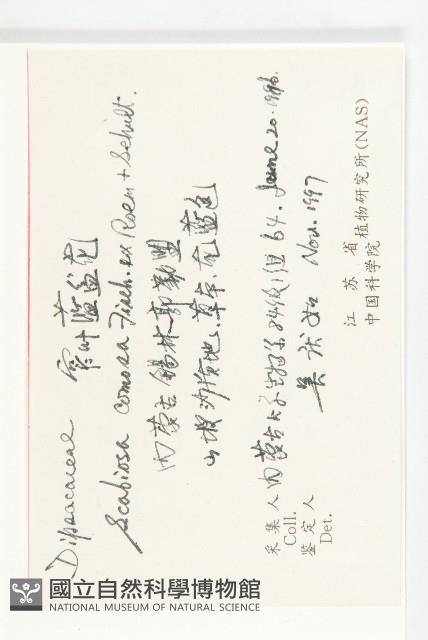 Dipsacaceae 窄叶蓝盆花
Scabiosa comosa Fisch. ex Roem + Schult.
内蒙古 锡林郭勒盟
山坡沙质地、草本、花蓝色
采集人 内蒙古大学生物系84级1组 64. June 20. 1986.
Coll.
鉴定人 Nov. 1997
Det.
江苏省植物研究所(NAS)
中国科学院
國立自然科學博物館
NATIONAL MUSEUM OF NATURAL SCIENCE